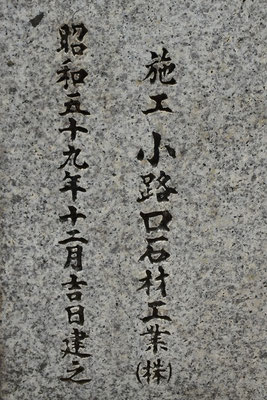 施工 小路口石材工業(株)
昭和五十九年十二月吉日建之